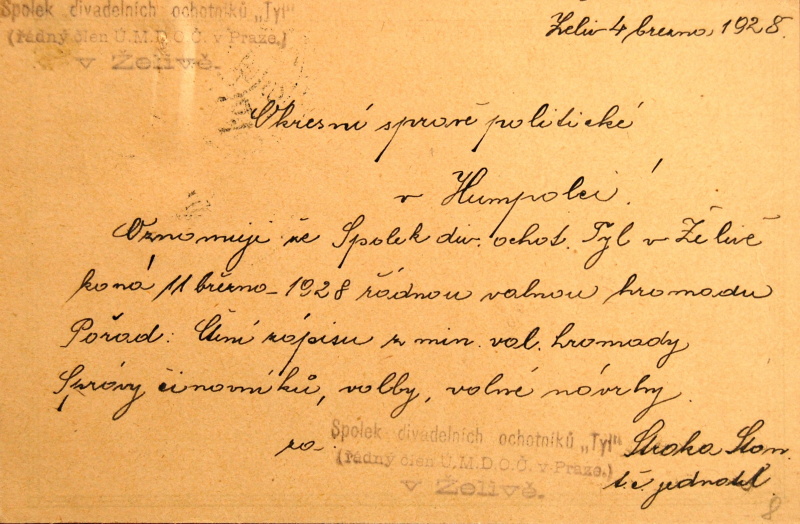 Spolek divadelních ochotníků „Tyl"
(řádný člen Ú.M.D.O.Č. v Praze.)
v Želivě.
Želiv 4 března 1928.
Okresní správě politické
v Humpolci!
Oznamuji že Spolek div. ochot. Tyl v Želivě
koná 11 března - 1928 řádnou valnou hromadu
Pořad: Čtení zápisu z min. val. hromady
Správy činovníků, volby, volné návrhy.
za
Spolek divadelních ochotníků „Tyl"
(řádný člen Ú.M.D.O.Č. v Praze.)
v Želivě.
Straka
t.č. jednatel
8